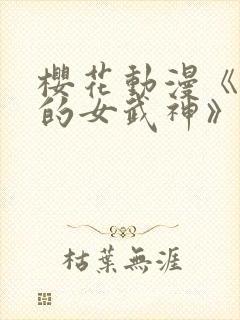 櫻花動漫《
的女武神》
枯葉無涯